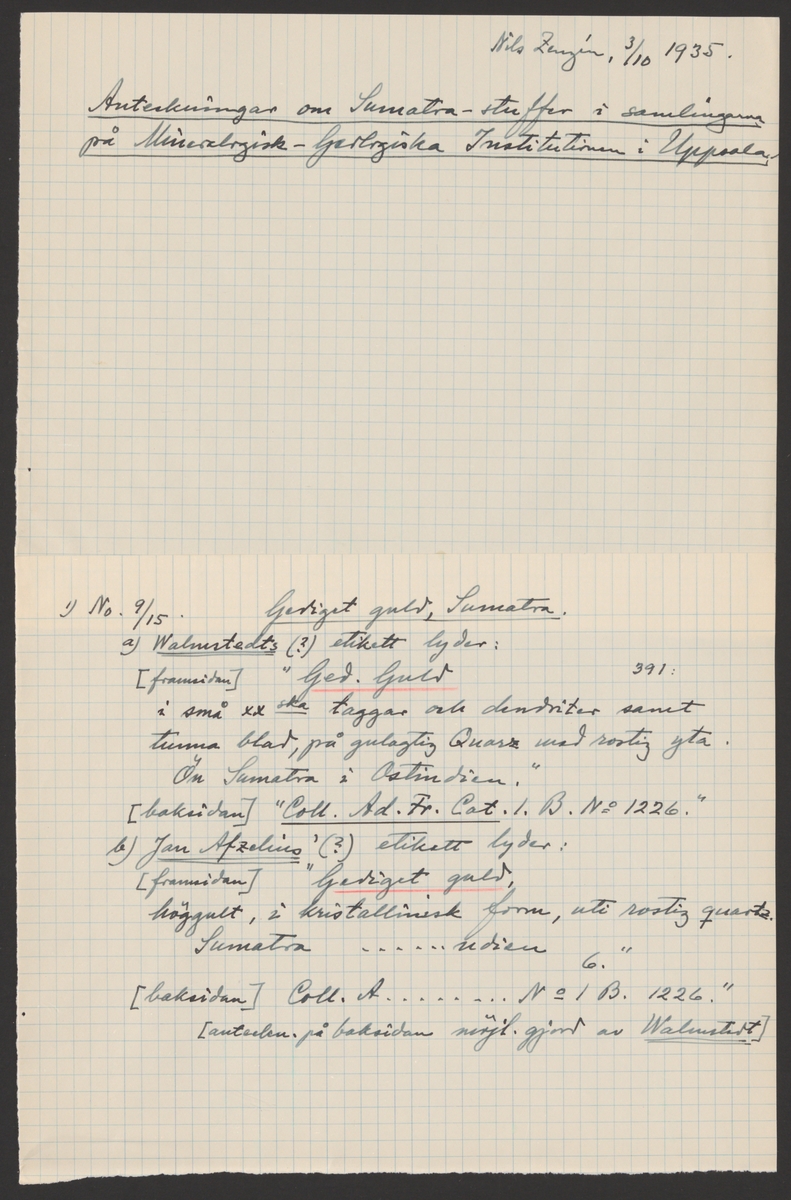 Nils Zenzén, 3/10 1935.
Anteckningar om Sumatra-stuffer i samlingarna
på Mineralogisk-Geologiska Institutionen i Uppsala.
1) No. 9/15. Gediget guld, Sumatra.
a) Walmstedts (?) etikett lyder:
[framsidan] "Ged. Guld 391:
i små xx ska taggar och dendriter samt
tunna blad, på gulagtig Quarz med rostig yta.
Ön Sumatra i Ostindien."
[baksidan] "Coll. Ad. Fr. Cat. 1. B. No 1226."
b) Jan Afzelius' (?) etikett lyder:
[framsidan] "Gediget guld,
höggult, i kristallinisk form, uti rostig quartz.
Sumatra ......ndien
6."
[baksidan] Coll. A......... No 1 B. 1226."
[anteckn. på baksidan möjl. gjord av Walmstedt]